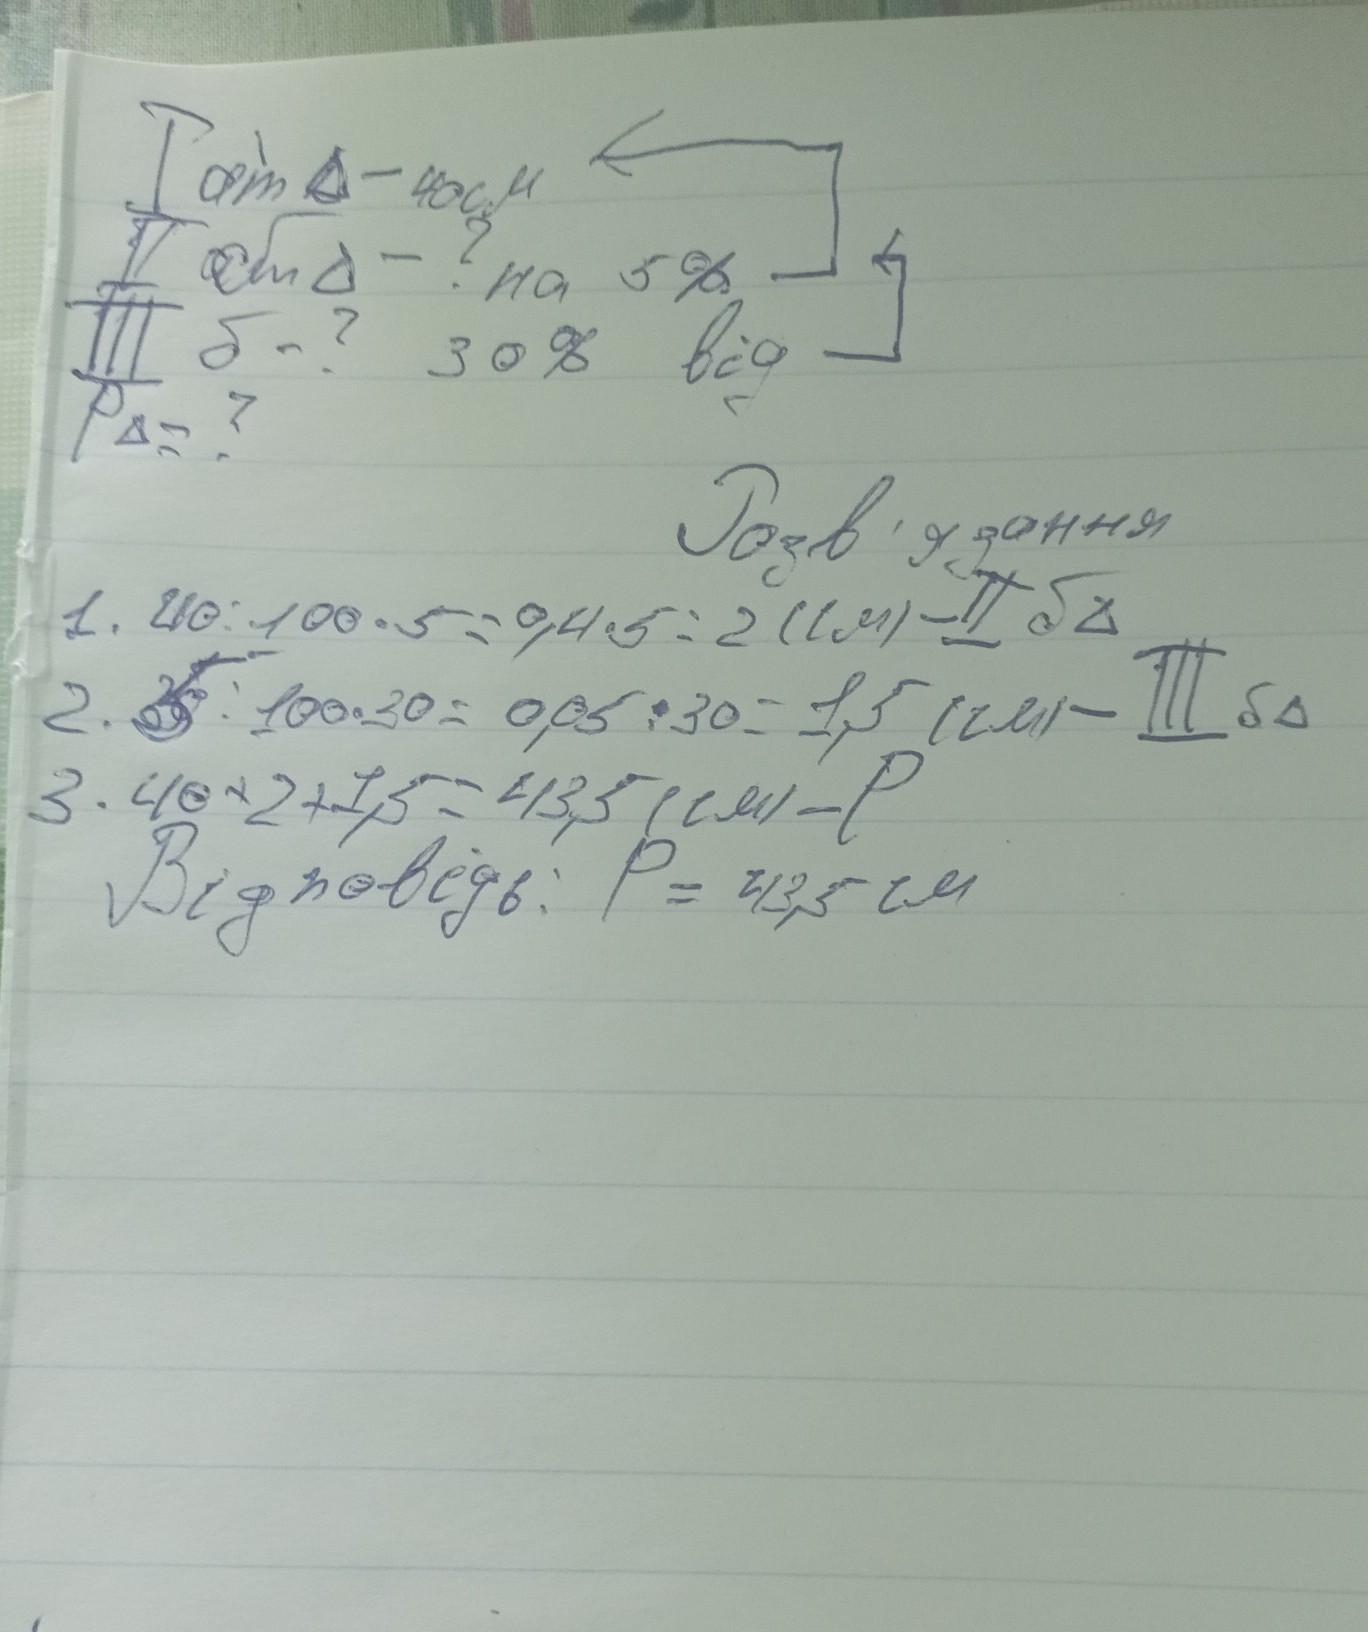 I ст Δ – 40см
II ст Δ – ? на 5%
III б - ? 30% від
PΔ = ?
Розв'язання
1. 40:100·5=0,4·5=2(см)–II бΔ
2. 5:100·30=0,05·30=1,5(см)–III бΔ
3. 40+2+1,5=43,5(см)–P
Відповідь: P=43,5см